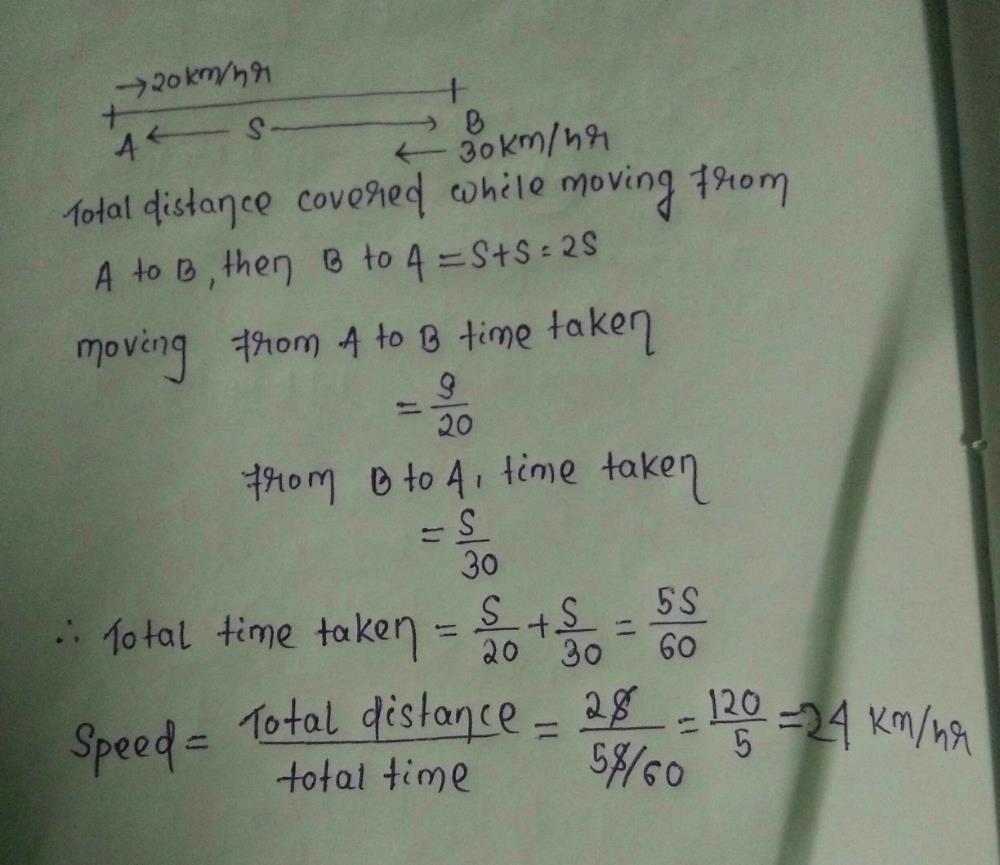 →20km/hr
A ← S → B
← 30km/hr
Total distance covered while moving from
A to B, then B to A = S+S = 2S
moving from A to B time taken
= S/20
from B to A, time taken
= S/30
∴ Total time taken = S/20 + S/30 = 5S/60
Speed = Total distance/total time = 2S/5S/60 = 120/5 = 24 km/hr